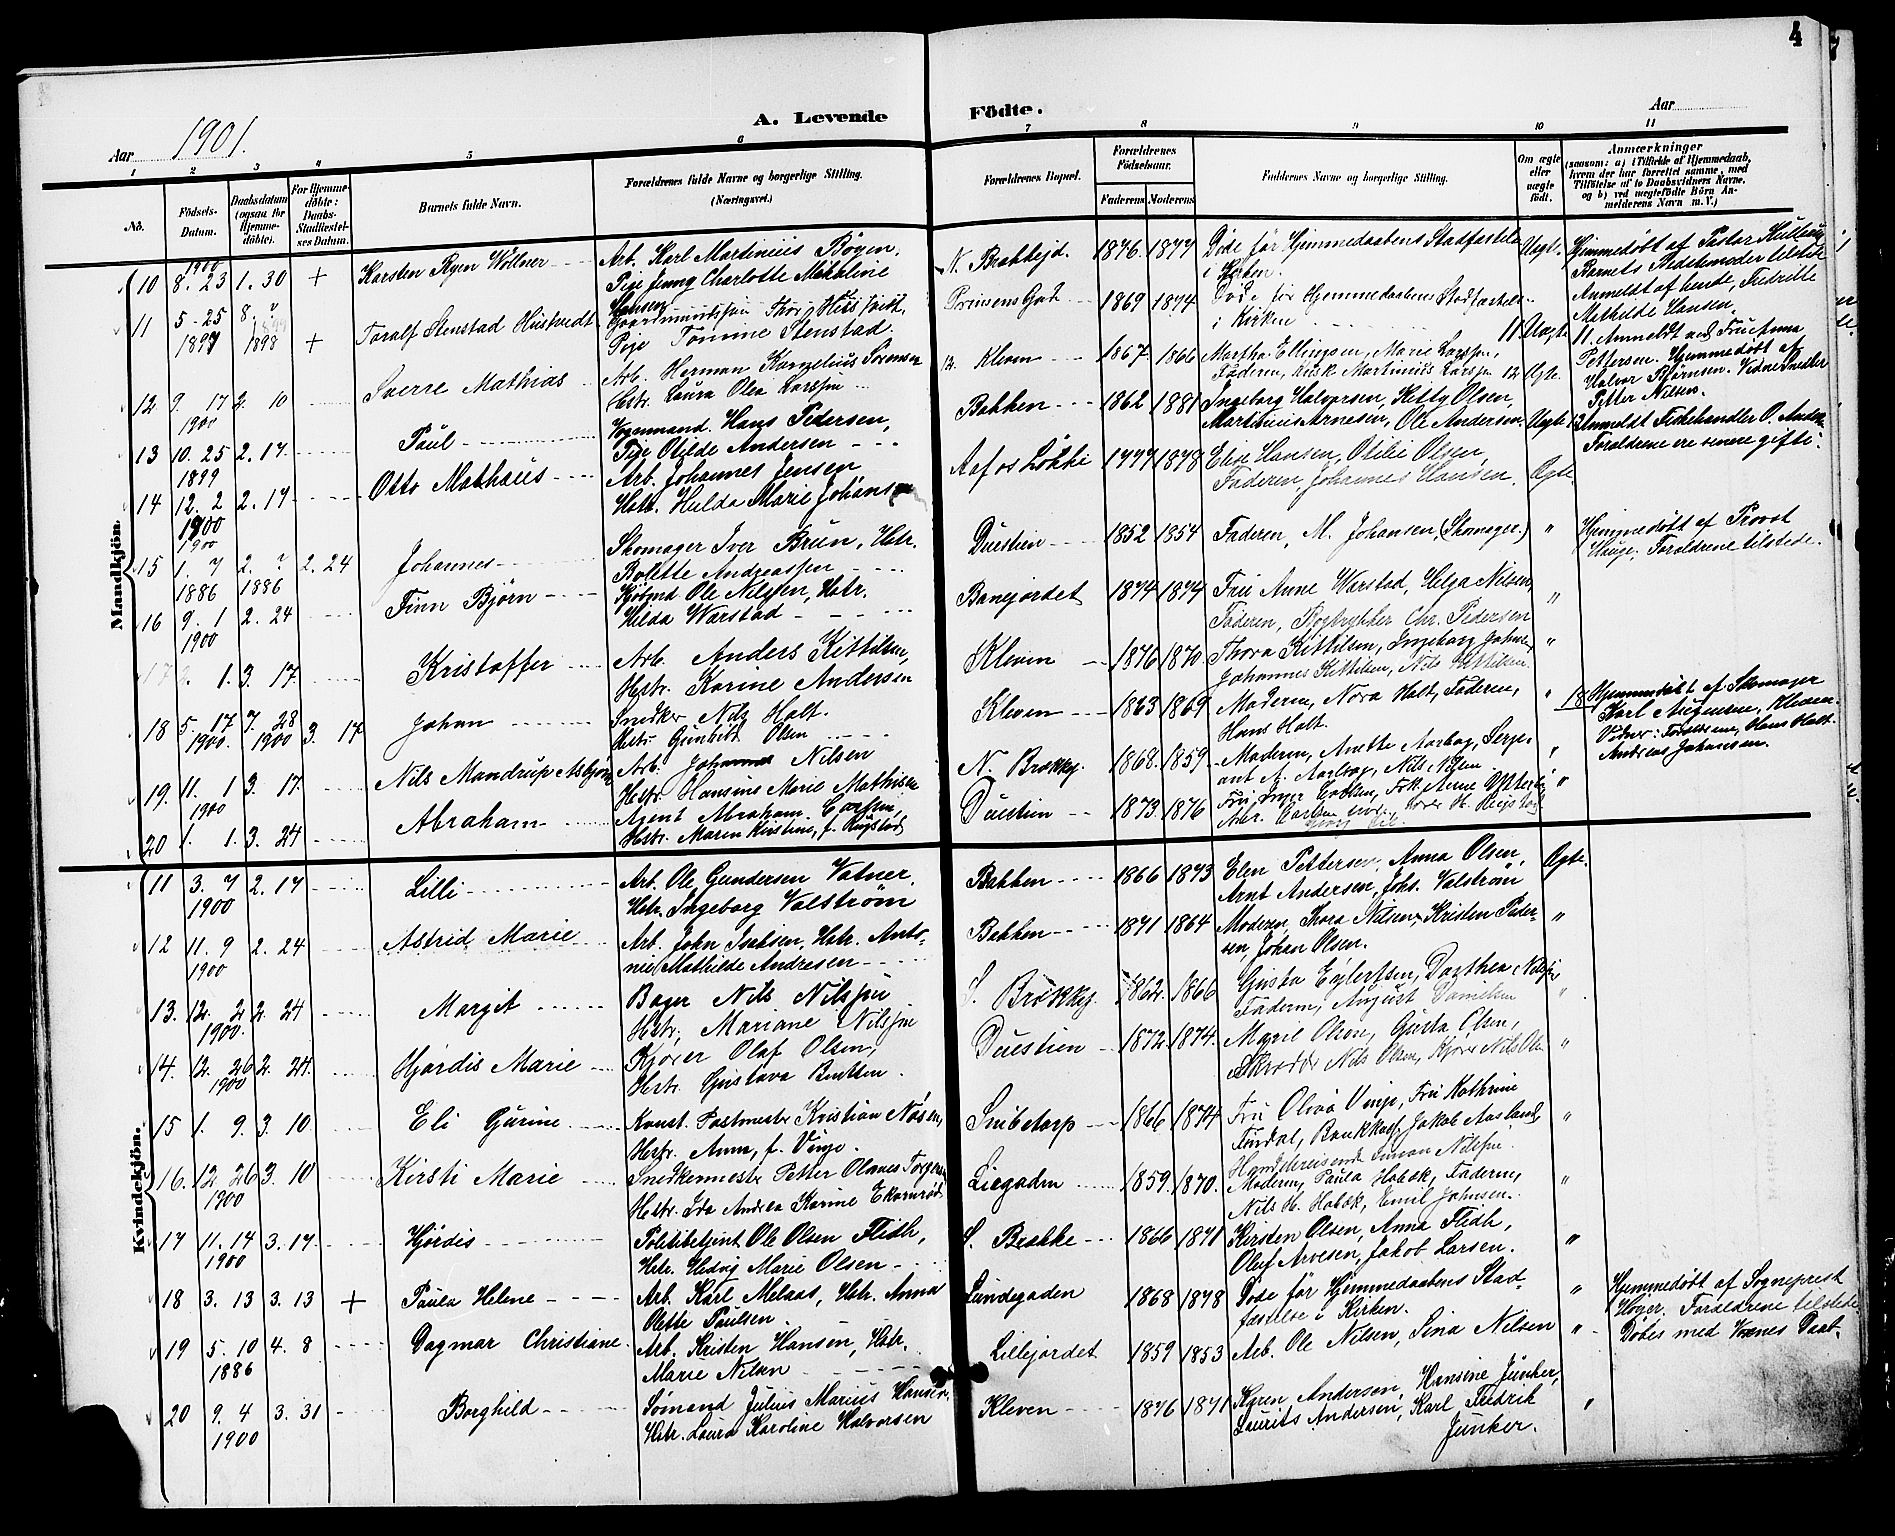 4
Aar 1901.
A. Levende Födte.
Aar
1 2 3 4 5 6 7 8 9 10 11
No.
Födsels-Datum.
Daabsdatum (ogsaa for Hjemmedöbte).
For Hjemmedöbte: Daabs-Stadfæstelses Datum.
Barnets fulde Navn.
Forældrenes fulde Navne og borgerlige Stilling.
(Næringsvei.)
Forældrenes Bopæl.
Forældrenes Födselsaar.
Faderens Moderens
Faddernes Navne og borgerlige Stilling.
Om ægte eller uægte födt.
Anmærkninger
(saasom: a) i Tilfælde af Hjemmedaab, hvem der har forrettet samme, med Tilföielse af to Daabsvidners Navne, og b) ved uægtefödte Börn Anmelderens Navn m. V.)
Mandkjön.
10 8. 23 1900 1. 30 + Karsten Ryen Wöllner
Arb. Karl Martinius Bögen,
Pige Jenny Charlotte Mikaline Hansen
N. Brækkejd. 1876 1877 Döde før Hjemmedaabens Stadfæstelse i Kirken. Uægte.
Hjemmedøbt af Pastor
Barnets tilstede
Anmeldt af hende, Fredrikke
Mathilde Hansen.
11 5-25 1897 8. 1898 + Toralf Stenstad Hustvedt
Pige Tomine Stenstad.
Prinsens Gad 1869 1874 Döde før Hjemmedaabens Stadfæstelse
i Kirken 11 Uægte
11 Anmeldt ved Fru Anna
Pettersen. Hjemmedøbt af
Halvor Bjørnsen. Vidne Snedker
Petter Nilsen.
12 9. 17 1900 2. 10 Sverre Mathias
Arb. Herman Kanzelius Sørensen
Hstr. Laura Olea Larssen
12. Kleven 1867 1866 Martha Ellingsen, Marie Larssen,
Faderen, Martinius Larssen 12 Ægte.
13 10. 25 1899 2. 17 Paul
Vognmand Hans Pedersen,
Pige Otilde Andersen
Bakken 1862 1881 Ingeborg Halvorsen, Hetty Olsen,
Martinius Arnesen, Ole Andersen. Uægte
13 Anmeldt Fiskehandler O. Anders.
Forældrene ere senere gifte.
14 12. 2 1900 2. 17 Otto Mathæus
Arb. Johannes Jensen
Hstr. Hulda Marie Johansen
Aafos Løkke 1877 1878 Elise Hansen, Otilie Olsen,
Faderen, Johannes Hansen. Ægte
15 1. 7 1886 2. 7 1886 2. 24 Johannes
Skomager Iver Brun, Hstr.
Bolette Andreassen
Duestien 1852 1854 Faderen, M. Johansen, (Skomager.) "
Hjemmedøbt af Provst
Hauge. Forældrene tilstede.
16 9. 1 1900 2. 24 Finn Björn
Ole Nilssen, Hstr.
Hilda Warstad
Banejordet 1874 1874 Fru Anne Warstad, Helga Nilsen,
Faderen, Bogtrykker Chr. Pedersen "
17 1. 3. 17. Kristoffer
Arb. Anders Kittilsen,
Hstr. Karine Andersen
Kleven 1876 1870 Thora Kittilsen, Ingeborg
Johannes Kittilsen, Nils Kittilsen "
18 5. 17 1900. 7. 28 1900 3. 17 Johan
Snedker Nils Holt.
Hstr. Gunhild Olsen
Kleven 1863 1869 Moderen, Nora Holt, Faderen,
Hans Holt. "
18 Hjemmedøbt af Skomager
Karl Kleven.
Vidner: Forældrene, Hans Holt.
Andreas Johansen.
19. 11. 1 1900 3. 17. Nils Mandrup Asbjörn
Arb. Johannes Nilsen
Hstr. Hansine Marie Mathisen
N. Brækkej. 1868 1859 Moderen, Anette Aarbog, Serge-
ant A. Aarbog, Nils Nilsen "
20 1. 1. 3. 24 Abraham
Agent Abraham Carlsen,
Hstr. Maren Kirstine, f. Rugstad
Duestien 1873 1876 "
Kvindekjön.
11 3. 7 1900 2. 17 Lilli
Arb. Ole Gundersen Vatner.
Hstr. Ingeborg Valström
Bakken 1866 1873 Elen Pettersen, Anna Olsen,
Arnt Andersen, Johs. Valström Ægte.
12 11. 9 1900 2. 24 Astrid Marie
Arb. John Isaksen, Hstr. Anto-
nie Mathilde Andresen
Bakken 1871 1864 Moderen, Thora Nilsen, Kristen Peder-
sen, Johan Olsen. "
13. 12. 2 1900. 2. 24 Margit
Bager Nils Nilssen
Hstr. Mariane Nilssen
S. Brækkej. 1862 1866 Gusta Eylertsen, Dorthea Nilssen,
Faderen, August Danielsen "
14. 12. 26 1900 2. 24. Hjördis Marie
Kjører Olaf Olsen,
Hstr. Gustava Bentsen.
Duestien 1872 1874. Marie Olsen, Gusta Olsen,
Skrædder Nils Olsen, Kjører Nils Olsen "
15 1. 9. 3. 10 Eli Gurine
Konst. Postmester Kristian Nösen,
Hstr. Anna, f. Vinje.
Snibetorp 1866 1874 Fru Olivia Vinje, Fru Kathrine
Fördal, Bankkass. Jakob Aasland,
Handelsreisende Simon Nilssen "
16. 12 26 1900 3. 10 Kirsti Marie
Snedkermester Petter Olaves Torgersen
Hstr. Ida Andrea Karine Ekornröd
Liegaden 1859 1870. Moderen, Paula Hobæk, Faderen,
Nils H. Hobæk, Emil Johnsen. "
17 11. 14 1900 3. 17 Hjördis
Politibetjent Ole Olsen Flidh,
Hstr. Hedvig Marie Olsen
S. Brække 1866 1871 Kirsten Olsen, Anna Flidh,
Oluf Arvesen, Jakob Larsen. "
18 3. 13 3. 13 + Paula Helene
Arb. Karl Melaas, Hstr. Anna
Olette Paulsen
Lundegaden 1868 1878 Döde før Hjemmedaabens Stad-
fæstelse i Kirken. "
Hjemmedøbt af Sogneprest
Höyer. Forældrene tilstede
19 5. 10 1886 4. 8 Dagmar Christiane
Arb. Kristen Hansen, Hstr.
Marie Nilsen
Lillejordet 1859 1853 Arb. Ole Nilsen, Sina Nilsen "
Döbes med Voxnes Daab.
20 9. 4 1900 3. 31 Borghild
Sömand Julius Marius Hansen
Hstr. Laura Karoline Halvorsen
Kleven 1876 1871 Karen Andersen, Hansine Junker,
Laurits Andersen, Karl Fredrik
Junker. "